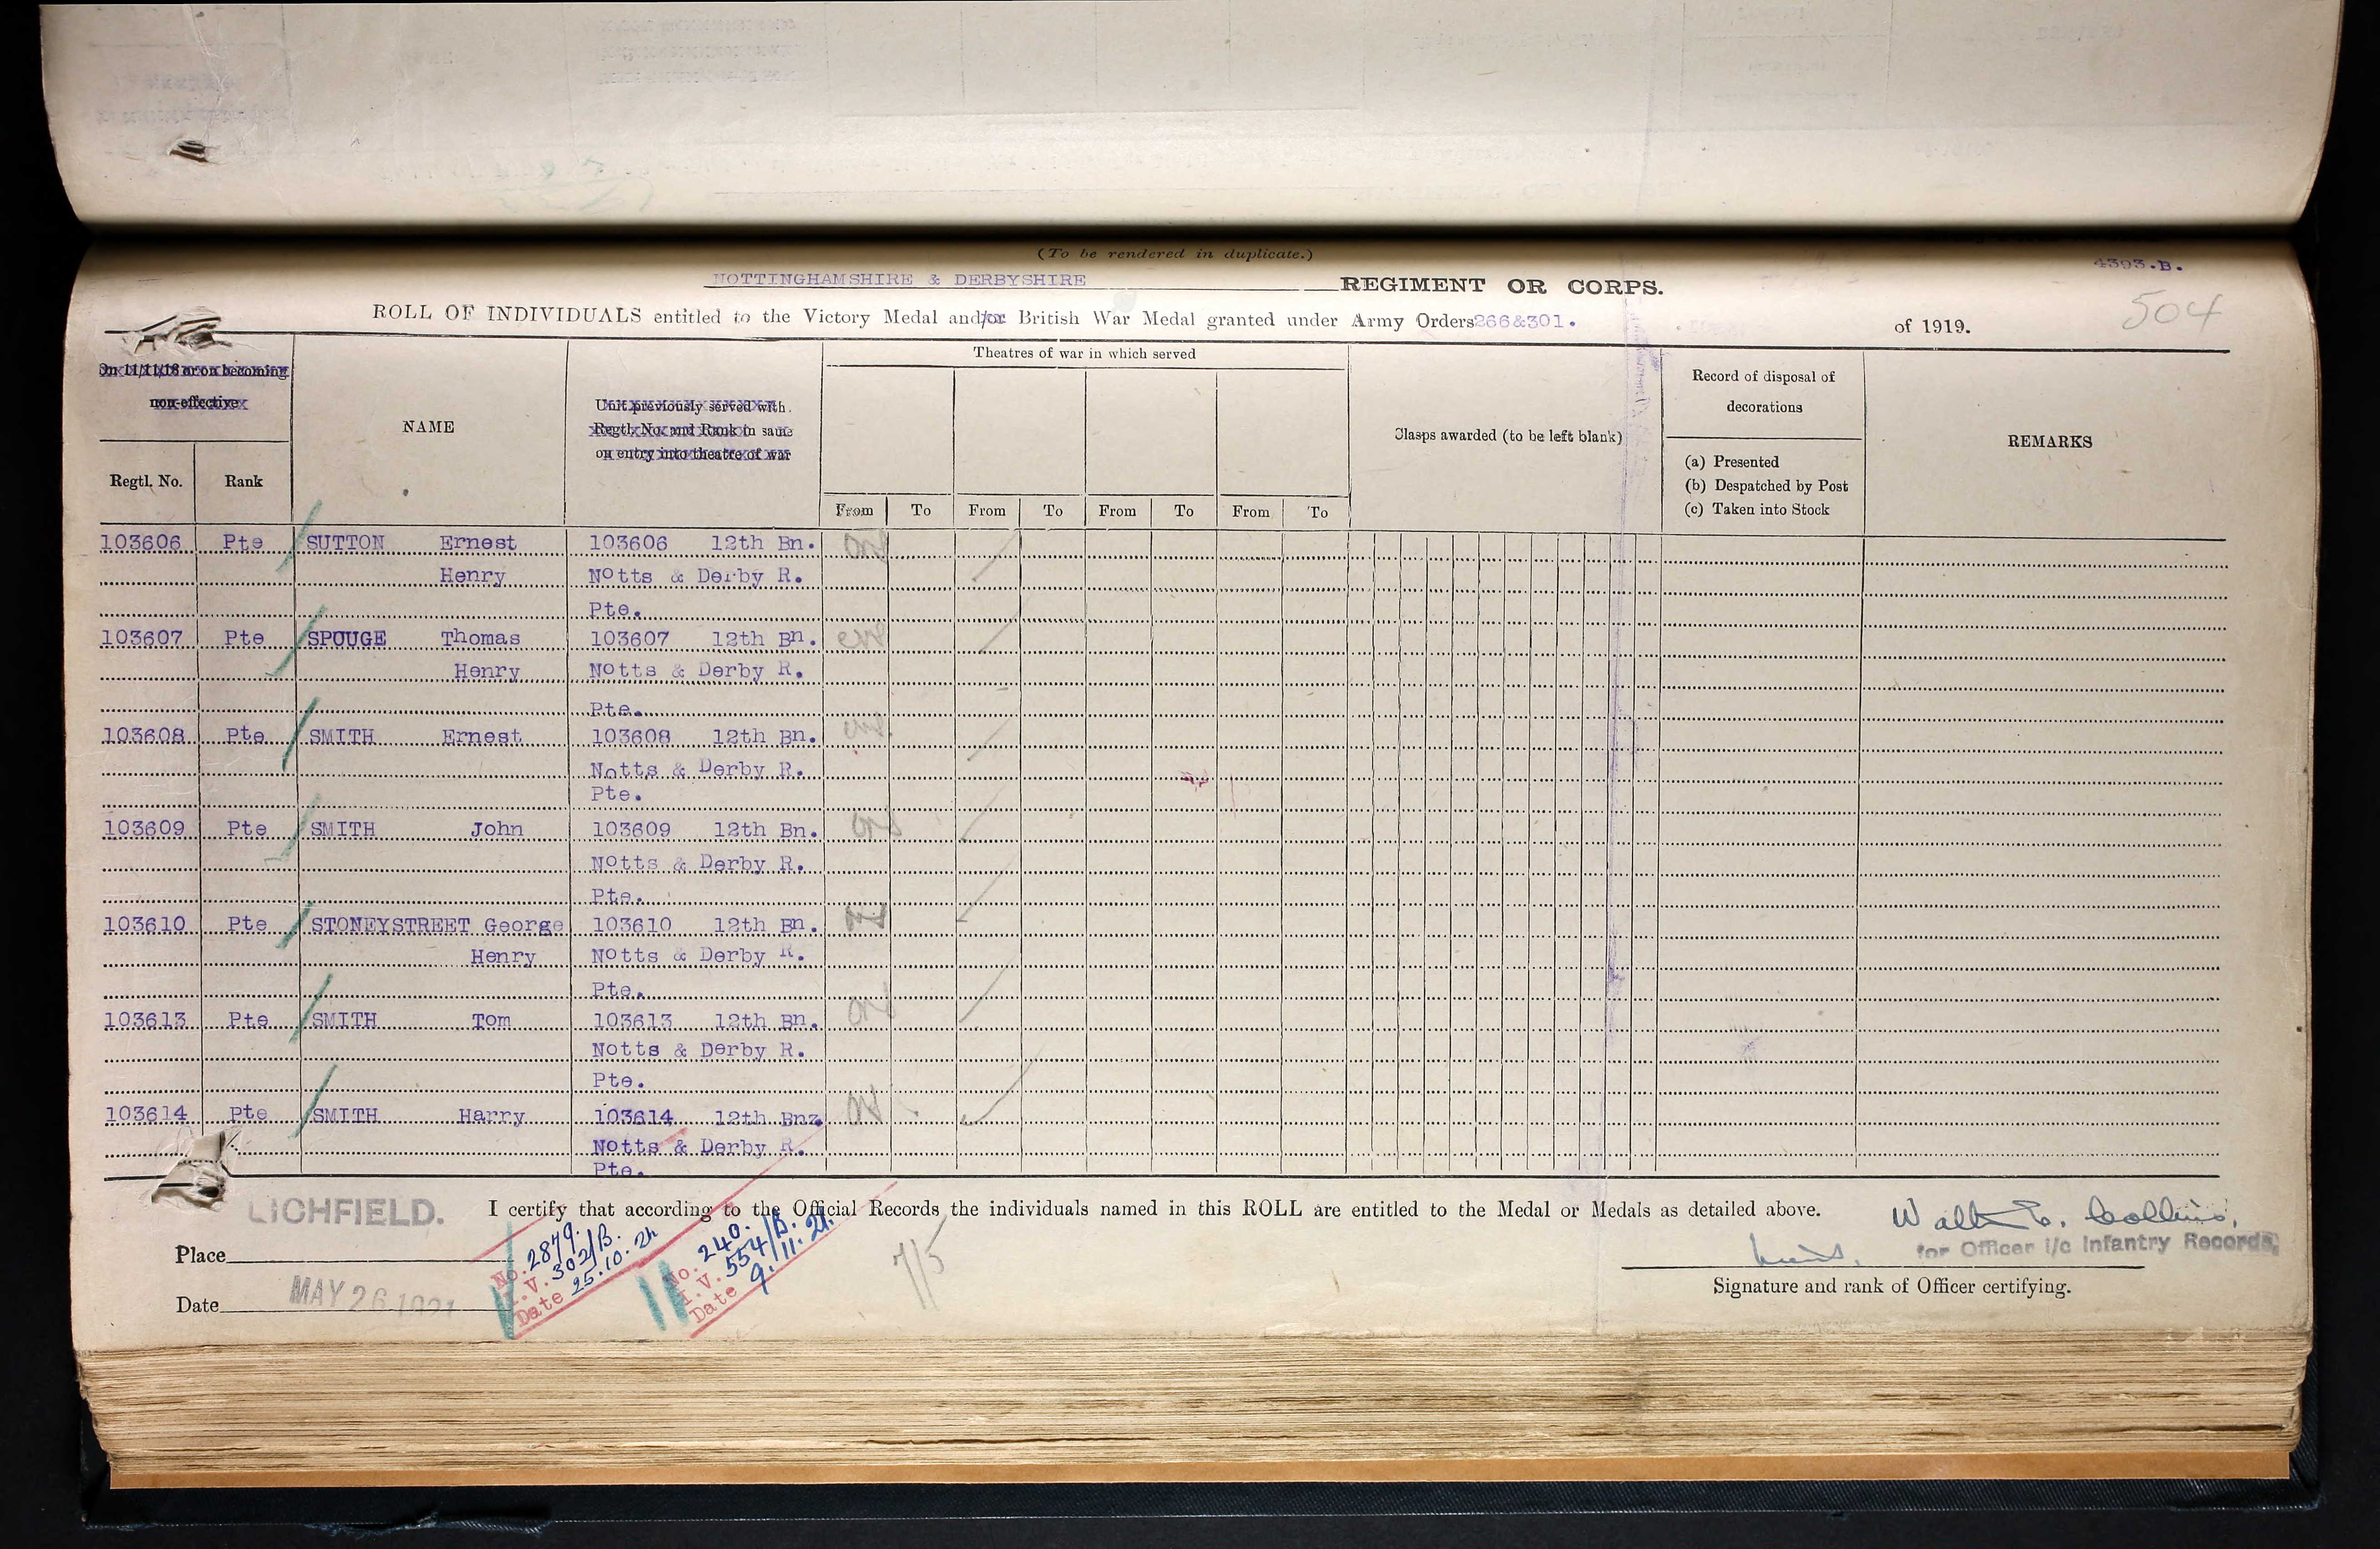 (To be rendered in duplicate.)
4393.B.
NOTTINGHAMSHIRE & DERBYSHIRE REGIMENT OR CORPS.
504
ROLL OF INDIVIDUALS entitled to the Victory Medal and/or British War Medal granted under Army Orders 266&301. of 1919.
On 11/11/18 or on becoming
non-effective
Regtl. No.
Rank
NAME
Unit previously served with.
Regtl. No. and Rank in same
on entry into theatre of war
Theatres of war in which served
From To From To From To From To
Clasps awarded (to be left blank)
Record of disposal of
decorations
(a) Presented
(b) Despatched by Post
(c) Taken into Stock
REMARKS
103606 Pte SUTTON Ernest 103606 12th Bn.
Henry Notts & Derby R.
Pte.
103607 Pte SPOUGE Thomas 103607 12th Bn.
Henry Notts & Derby R.
Pte.
103608 Pte SMITH Ernest 103608 12th Bn.
Notts & Derby R.
Pte.
103609 Pte SMITH John 103609 12th Bn.
Notts & Derby R.
Pte.
103610 Pte STONEYSTREET George 103610 12th Bn.
Henry Notts & Derby R.
Pte.
103613 Pte SMITH Tom 103613 12th Bn.
Notts & Derby R.
Pte.
103614 Pte SMITH Harry 103614 12th Bnz
Notts & Derby R.
Pte.
I certify that according to the Official Records the individuals named in this ROLL are entitled to the Medal or Medals as detailed above.
LICHFIELD.
Place
MAY 26 1921
Date
No. 2879.
I.V. 302/B.
Date 25.10.21
No. 240.
I.V. 554/B.
Date 9.11.21.
7/5
Collins,
for Officer i/c Infantry Records,
Signature and rank of Officer certifying.